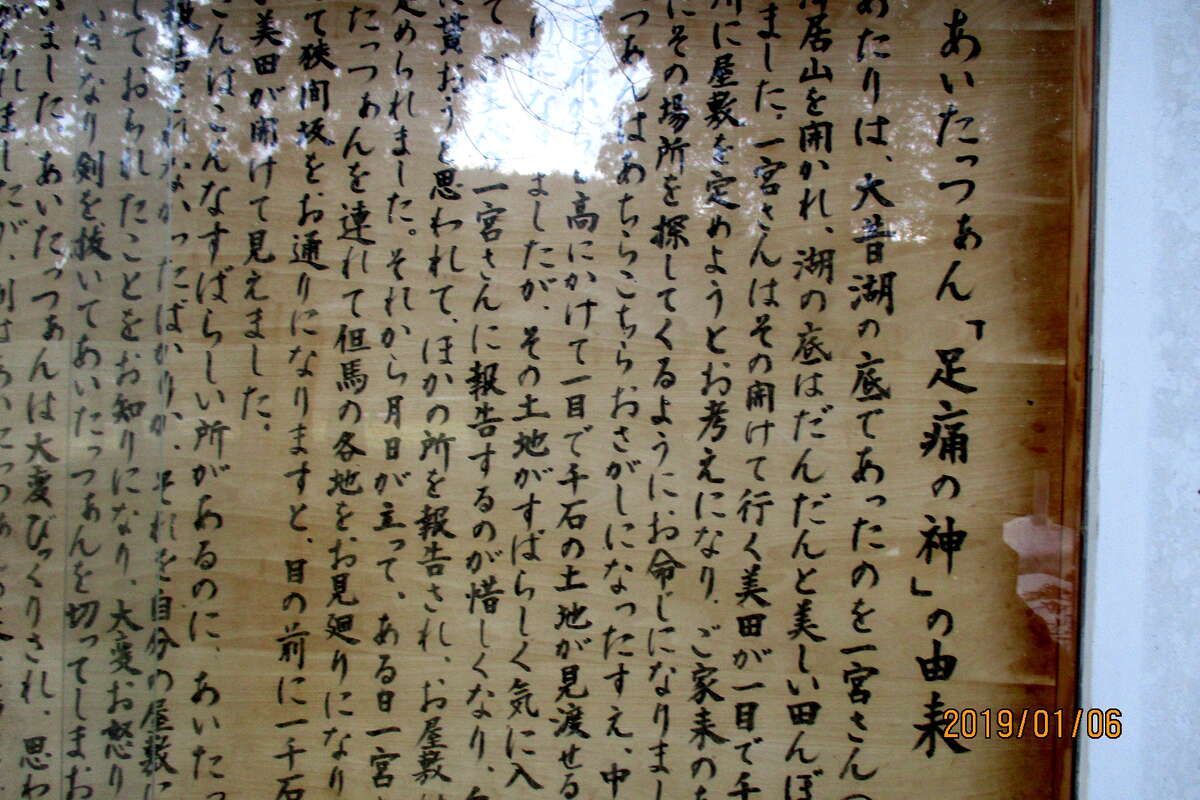 あいたっつぁん「足痛の神」の由来
あたりは、大昔湖の底であったのを一宮さん
居山を開かれ、湖の底はだんだんと美しい田んぼ
ました。一宮さんはその開けて行く美田が一目で千
川に屋敷を定めようとお考えになり、ご家来の
にその場所を探してくるように、お命じになりまし
つぁんはあちらこちらおさがしになったすえ、中
高にかけて一目で千石の土地が見渡せる
ましたが、その土地がすばらしく気に入
一宮さんに報告するのが惜しくなり、
に貰おうと思われて、ほかの所を報告され、お屋敷
定められました。それから月日が立って、ある日一宮
たっつぁんを連れて但馬の各地を、お見廻りになり
て狭間坂を、お通りになりますと、目の前に一千石
美田が開けて見えました。
こんなすばらしい所があるのに、あいたっ
なかったばかりか、それを自分の屋敷に
しておられたことをお知りになり、大変お怒り
いきなり剣を抜いてあいたっつぁんを切ってしまお
いました。あいたっつぁんは大変びっくりされ、思わ
られましたが、
2019/01/06